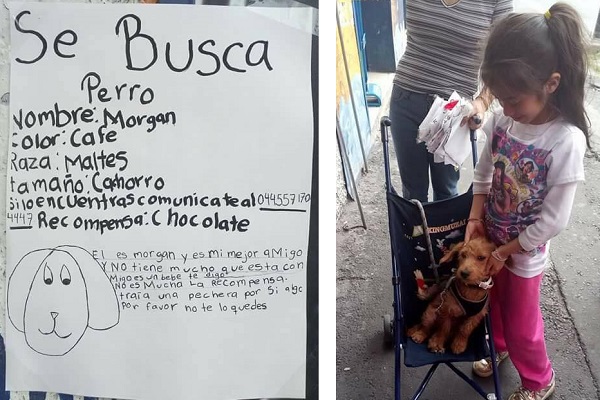 Se Busca
Perro
Nombre: Morgan
Color: Cafe
Raza: Maltes
tamaño: Cachorro
Si lo encuentras comunicate al 044557170
4447 Recompensa: Chocolate
El es morgan y es mi mejor aMigo
Y NO tiene mucho que esta con
Migo es un bebe te digo
NO es Mucha La recompensa.
traía una pechera por si algo
Por favor no te lo quedes
KINGMUSA